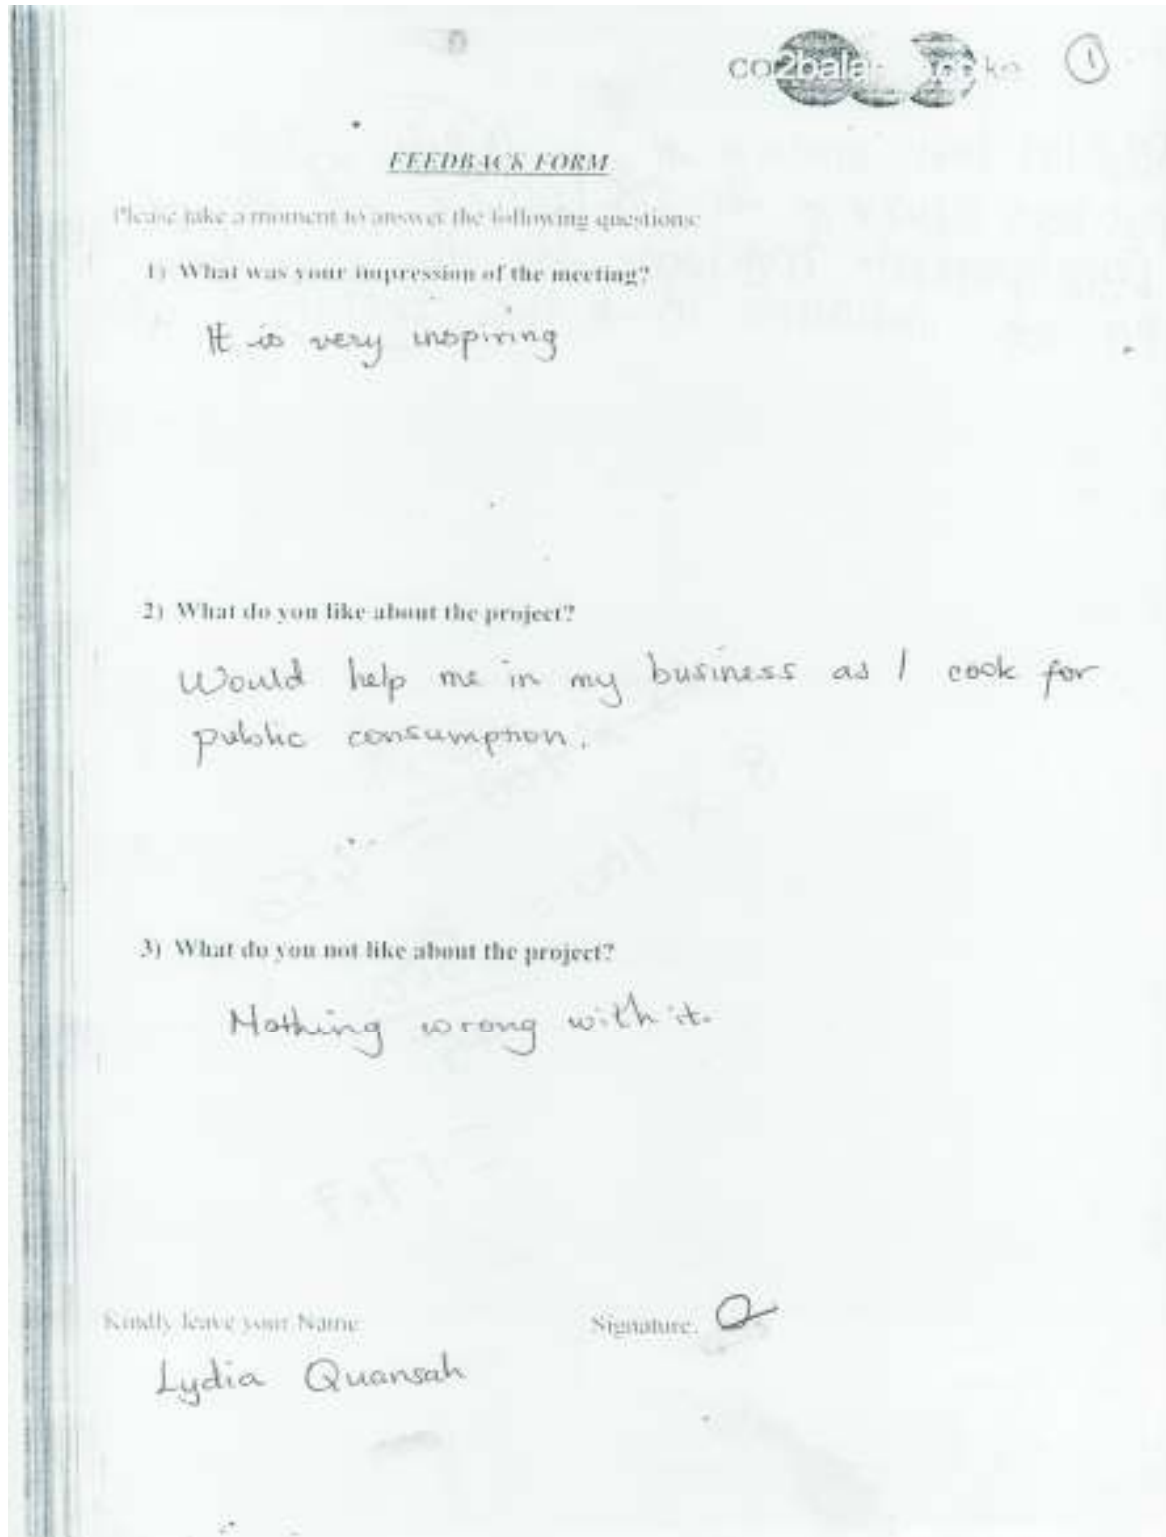 co2bala
1
FEEDBACK FORM
Please take a moment to answer the following questions:
1) What was your impression of the meeting?
It is very inspiring
2) What do you like about the project?
Would help me in my business as I cook for
public consumption.
3) What do you not like about the project?
Nothing wrong with it.
Kindly leave your Name
Signature.
Lydia Quansah